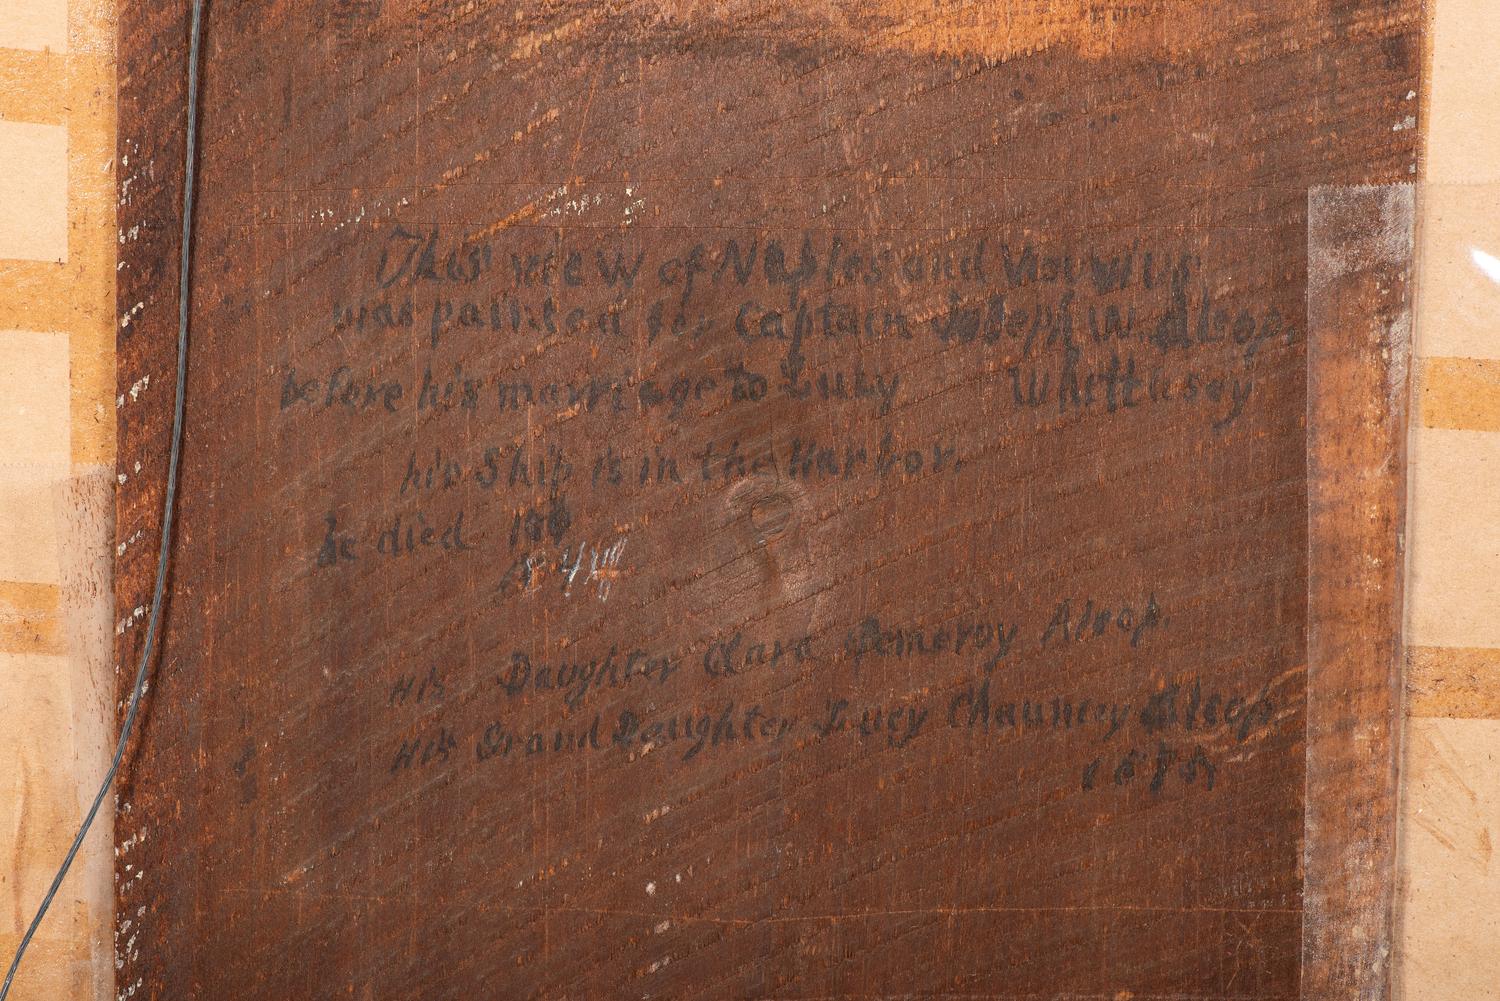 This view of Naples and Vesuvius
was painted for Captain Joseph W. Alsop,
before his marriage to Lucy Whittlesey
his Ship is in the Harbor.
he died 184
184
His Daughter Clara Pomeroy Alsop.
His Grand Daughter Lucy Chauncey Alsop
1875